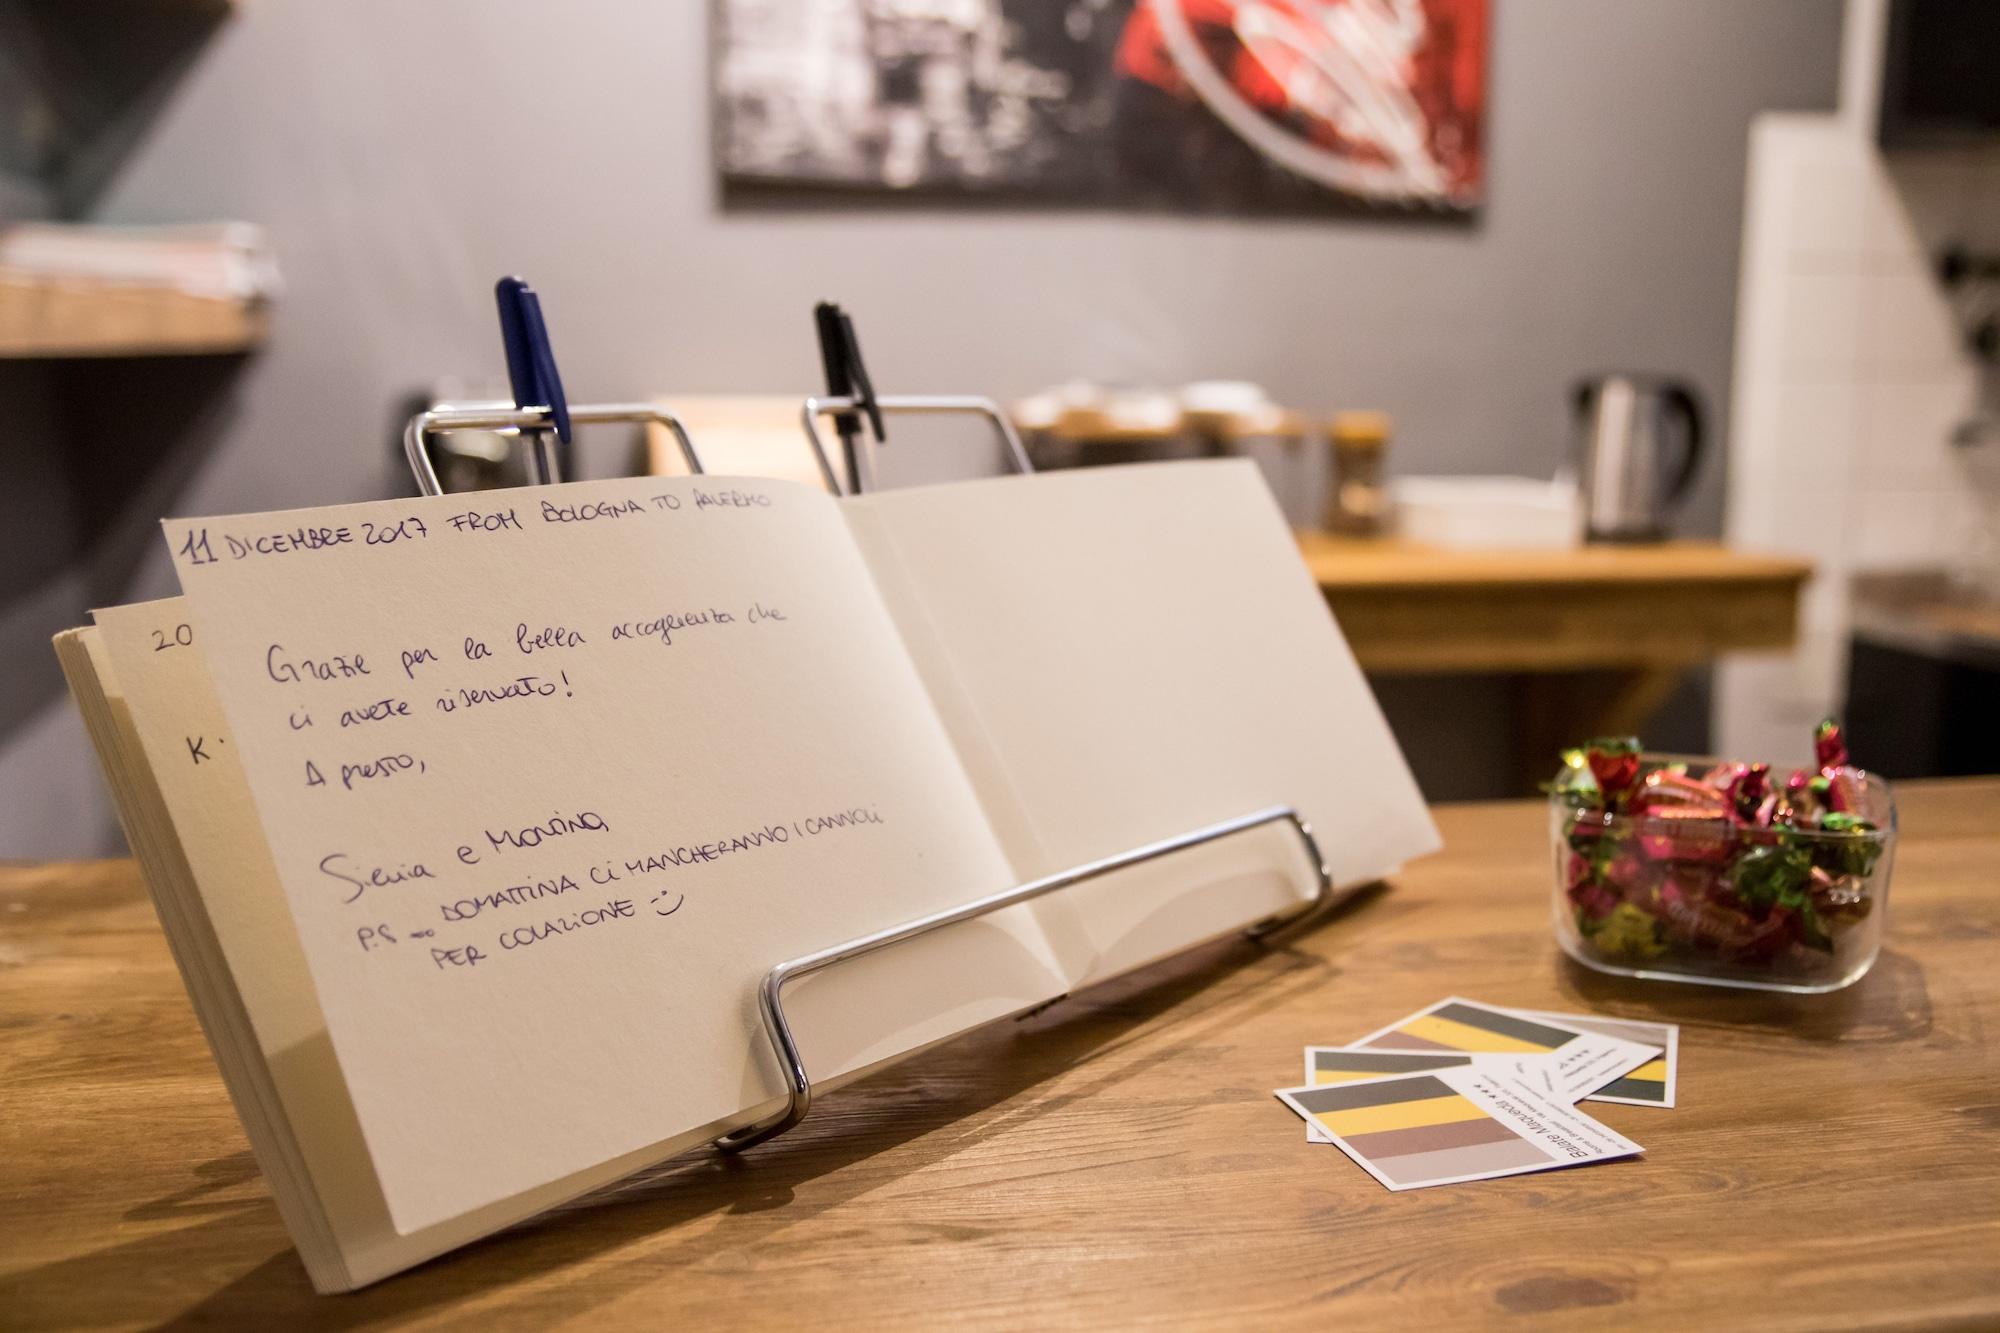 11 DICEMBRE 2017 FROM BOLOGNA TO PALERMO
Grazie per la bella accoglienza che
ci avete riservato!
A presto,
Silvia e Martina
P.S → DOMATTINA CI MANCHERANNO I CANNOLI
PER COLAZIONE :-)
20
K.
Balate Maqueda ★★★
Rooms & Breakfast